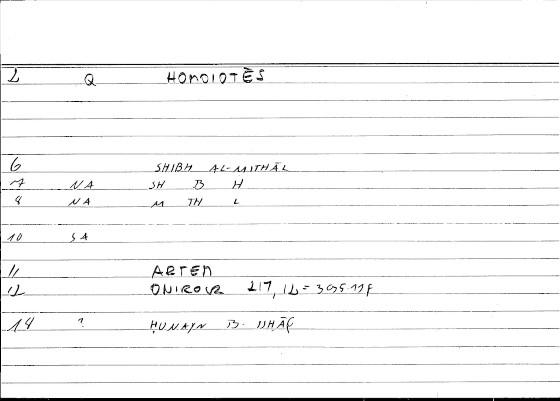 2 Q HOMOIOTĒS
6 SHIBH AL-MITHĀL
7 NA SH B H
8 NA M TH L
10 SA
11 ARTEM
12 ONIROCR 217, 12 =
14 ? ḤUNAYN B. ISḤĀQ